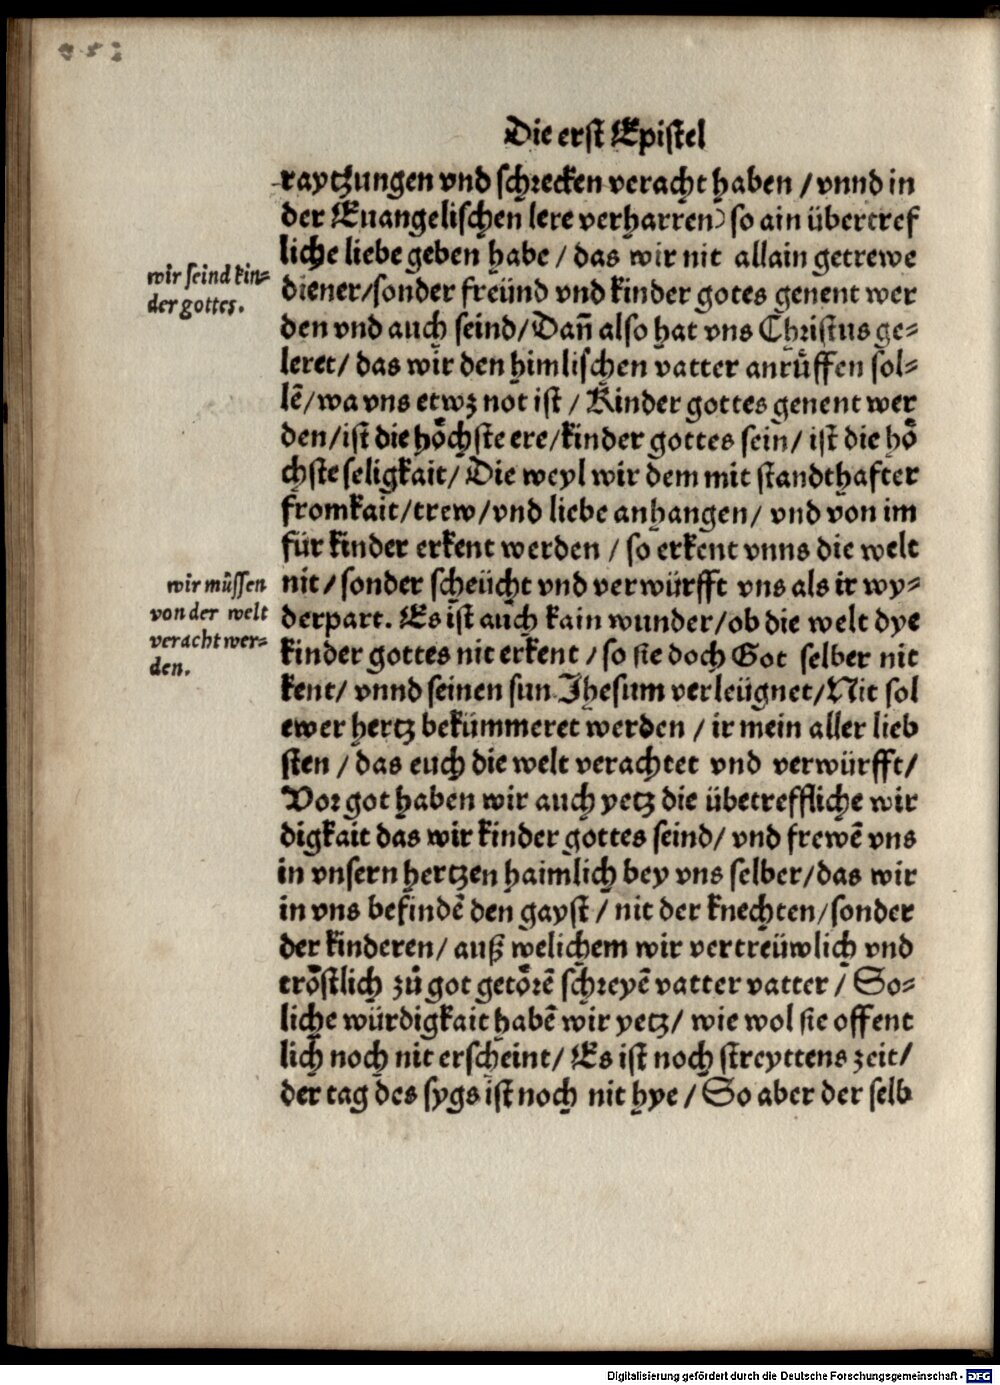 Die erst Epistel
raytzungen vnd schrecken veracht haben / vnnd in
der Euangelischen lere verharren) so ain übertref
liche liebe geben habe / das wir nit allain getrewe
wir seind kin=
der gottes.
diener/sonder freünd vnd kinder gotes genent wer
den vnd auch seind/Dañ also hat vns Christus ge=
leret/ das wir den himlischen vatter anrůffen sol=
lẽ/wa vns etwz not ist / Kinder gottes genent wer
den/ist die hoͤchste ere/kinder gottes sein/ ist die hoͤ
chste seligkait/ Die weyl wir dem mit standthafter
fromkait/trew/vnd liebe anhangen/ vnd von im
für kinder erkent werden / so erkent vnns die welt
wir muͤssen
von der welt
veracht wer=
den.
nit / sonder scheücht vnd verwürfft vns als ir wy=
derpart. Es ist auch kain wunder/ob die welt dye
kinder gottes nit erkent / so sie doch Got selber nit
kent/ vnnd seinen sun Jhesum verleügnet/Nit sol
ewer hertz bekümmeret werden / ir mein aller lieb
sten / das euch die welt verachtet vnd verwürfft/
Vor got haben wir auch yetz die übetreffliche wir
digkait das wir kinder gottes seind/ vnd frewẽ vns
in vnsern hertzen haimlich bey vns selber/das wir
in vns befindẽ den gayst / nit der knechten/sonder
der kinderen/ auß welichem wir vertreüwlich vnd
troͤstlich zů got getoͤrẽ schreyẽ vatter vatter / So=
liche würdigkait habẽ wir yetz/ wie wol sie offent
lich noch nit erscheint/ Es ist noch streyttens zeit/
der tag des sygs ist noch nit hye / So aber der selb
Digitalisierung gefördert durch die Deutsche Forschungsgemeinschaft - DFG